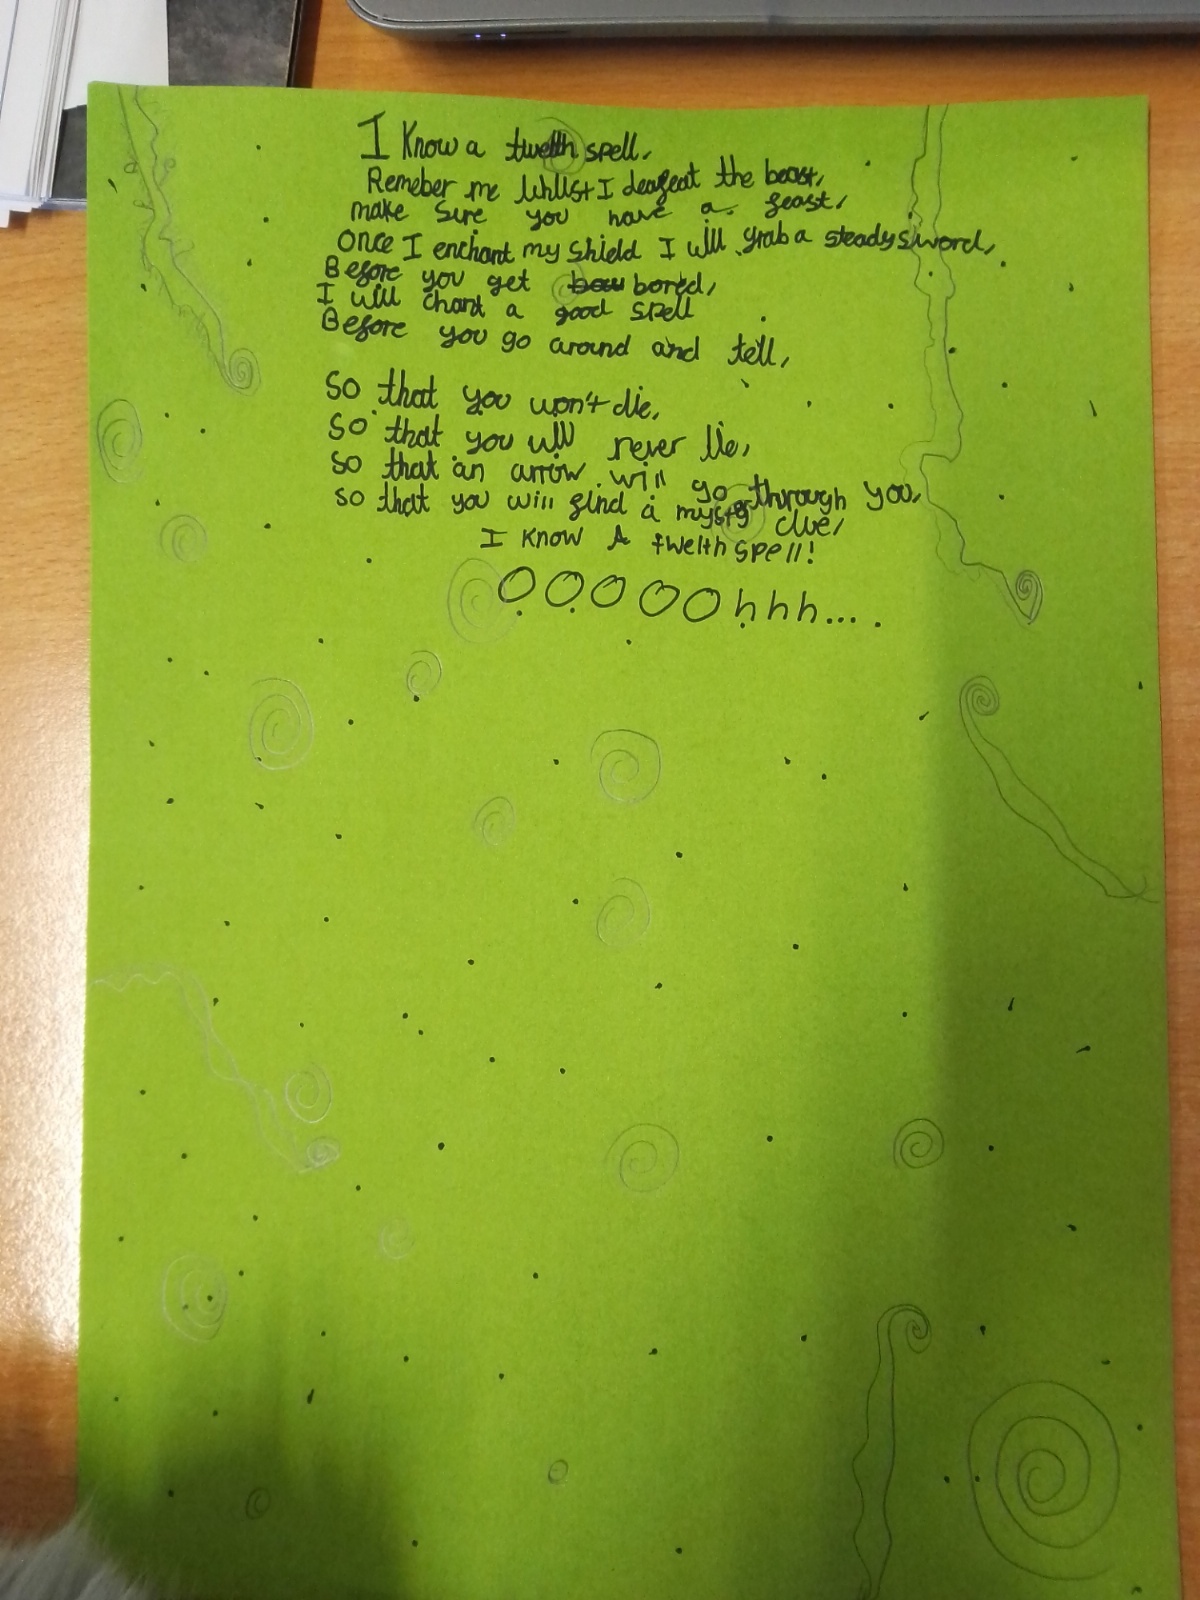 I Know a twelth spell,
Remeber me whilst I deafeat the beast,
make sure you have a feast,
Once I enchant my shield I will grab a steady sword,
Before you get bored,
I will chant a good spell
Before you go around and tell,
So that you won't die,
So that you will never lie,
So that an arrow will go through you,
So that you will find a mystg clue,
I know A twelth spell!
OOOOOhhh....